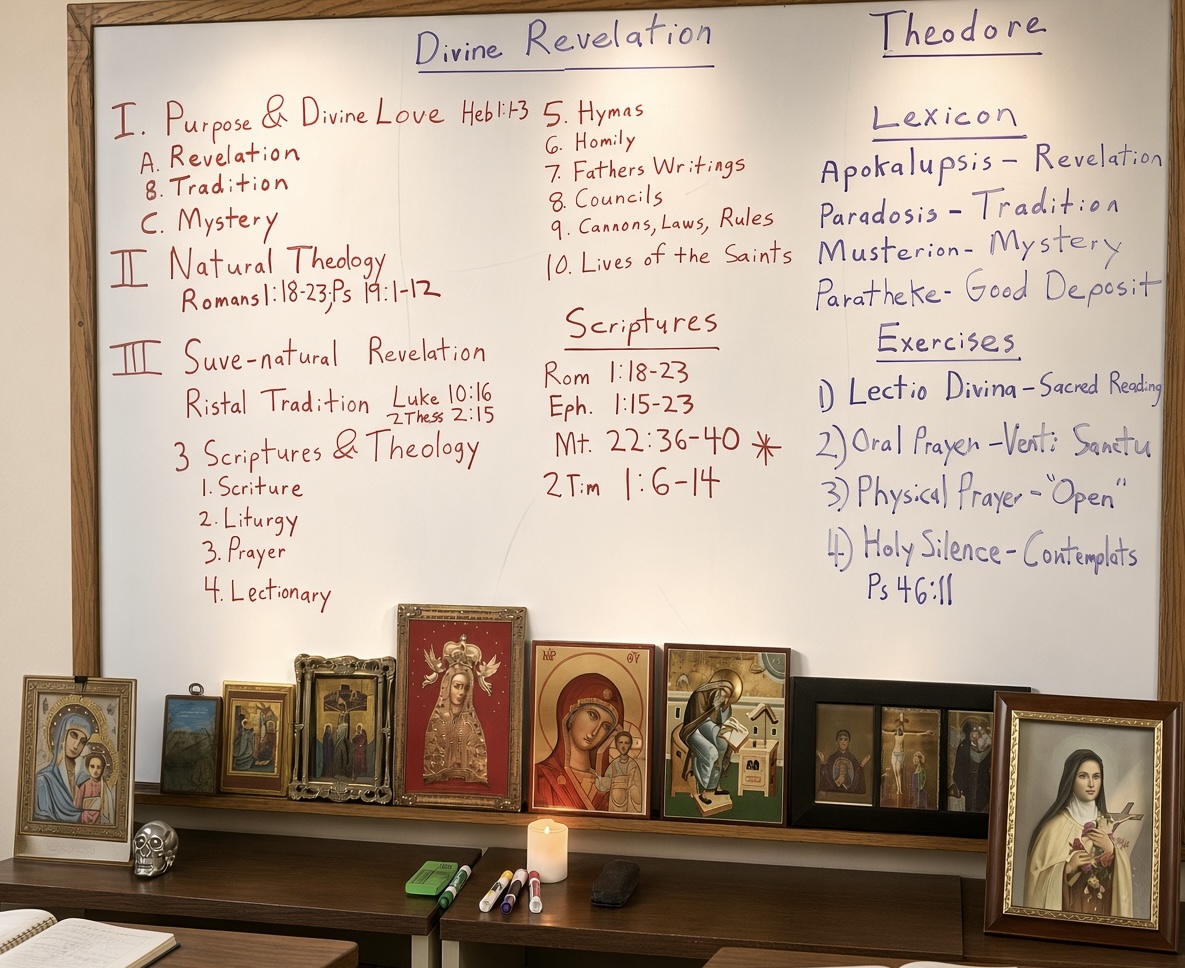 Divine Revelation
Theodore
I. Purpose & Divine Love Heb 1:1-3
A. Revelation
B. Tradition
C. Mystery
II Natural Theology
Romans 1:18-23; Ps 19:1-12
III Suve-natural Revelation
Ristal Tradition Luke 10:16
2 Thess 2:15
3 Scriptures & Theology
1. Scriture
2. Liturgy
3. Prayer
4. Lectionary
5. Hymas
6. Homily
7. Fathers Writings
8. Councils
9. Cannons, Laws, Rules
10. Lives of the Saints
Scriptures
Rom 1:18-23
Eph. 1:15-23
Mt. 22:36-40 *
2 Tim 1:6-14
Lexicon
Apokalupsis - Revelation
Paradosis - Tradition
Musterion - Mystery
Paratheke - Good Deposit
Exercises
1) Lectio Divina - Sacred Reading
2) Oral Prayer - Veni Sanctu
3) Physical Prayer - "Open"
4) Holy Silence - Contemplats
Ps 46:11